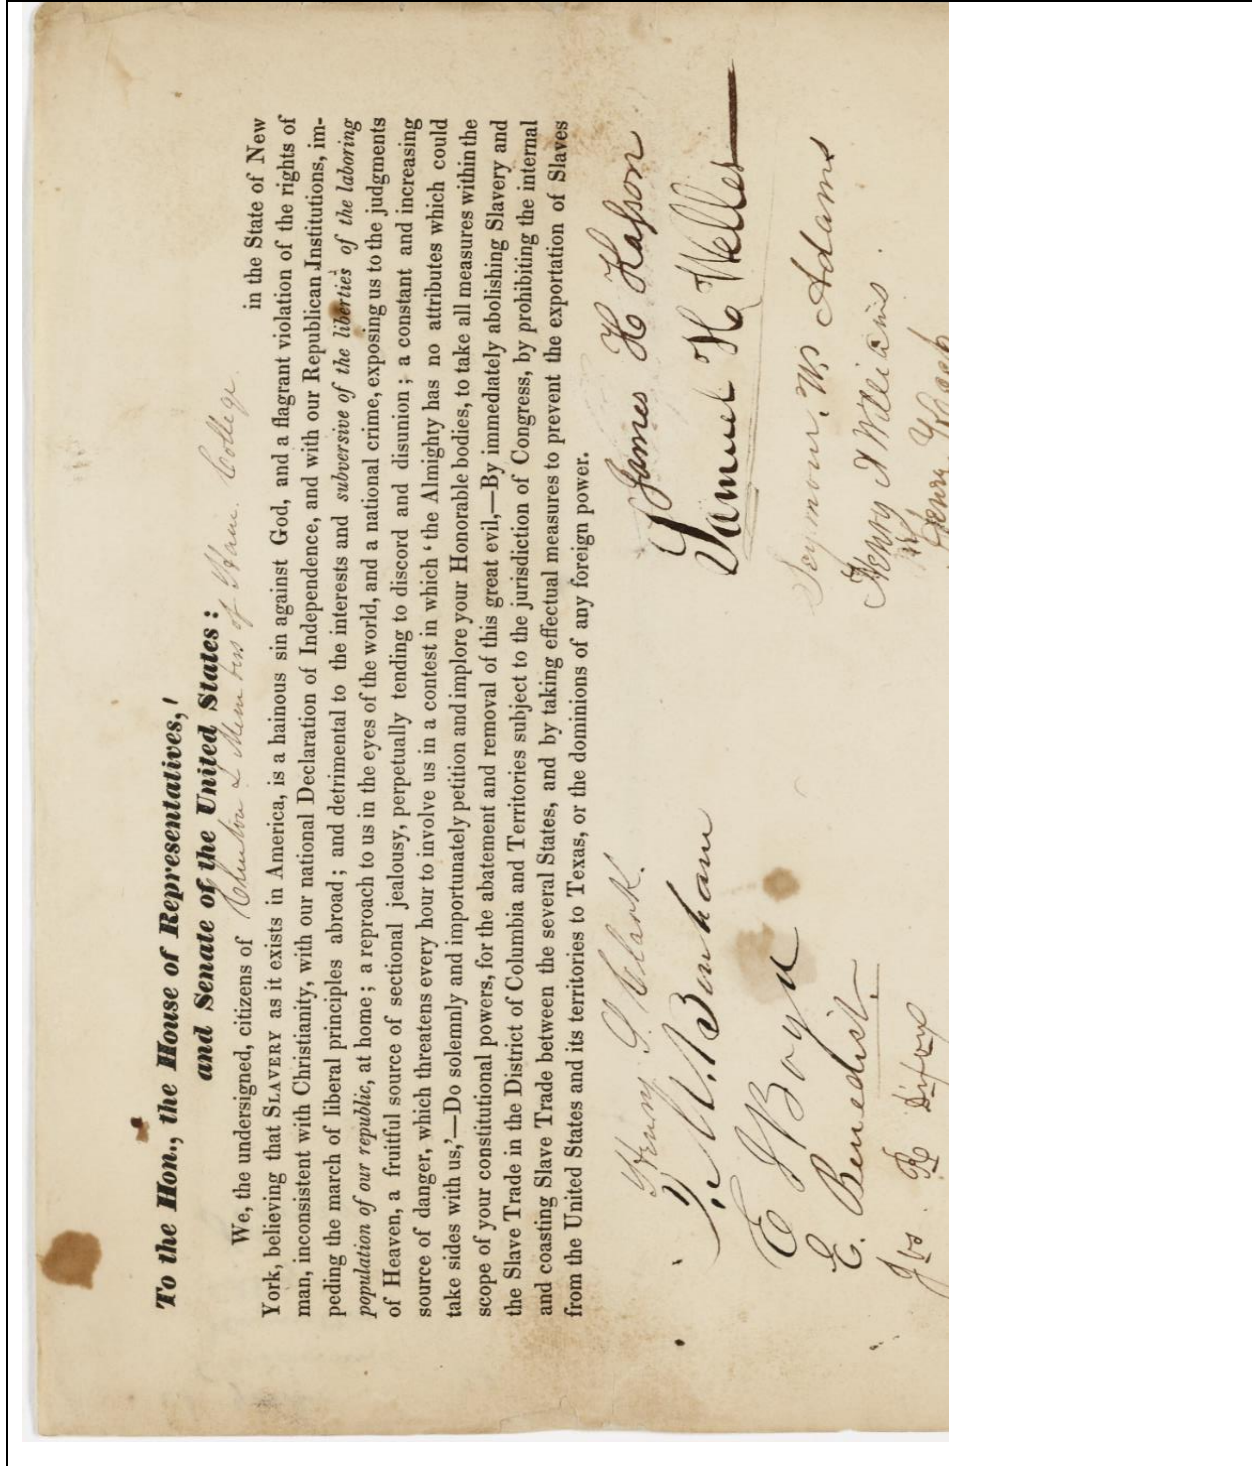 To the Hon., the House of Representatives,
and Senate of the United States :
We, the undersigned, citizens of Clinton & Members of Ham. College in the State of New
York, believing that SLAVERY as it exists in America, is a hainous sin against God, and a flagrant violation of the rights of
man, inconsistent with Christianity, with our national Declaration of Independence, and with our Republican Institutions, im-
peding the march of liberal principles abroad ; and detrimental to the interests and subversive of the liberties of the laboring
population of our republic, at home ; a reproach to us in the eyes of the world, and a national crime, exposing us to the judgments
of Heaven, a fruitful source of sectional jealousy, perpetually tending to discord and disunion ; a constant and increasing
source of danger, which threatens every hour to involve us in a contest in which ‘ the Almighty has no attributes which could
take sides with us,’—Do solemnly and importunately petition and implore your Honorable bodies, to take all measures within the
scope of your constitutional powers, for the abatement and removal of this great evil,—By immediately abolishing Slavery and
the Slave Trade in the District of Columbia and Territories subject to the jurisdiction of Congress, by prohibiting the internal
and coasting Slave Trade between the several States, and by taking effectual measures to prevent the exportation of Slaves
from the United States and its territories to Texas, or the dominions of any foreign power.
Henry G. Clark.
Benham
E J Boyd
E. Benedict.
Jos. R Dixon
James H Hasson
Samuel H Welles
Seymour W Adams
Henry A Williams.
Henry